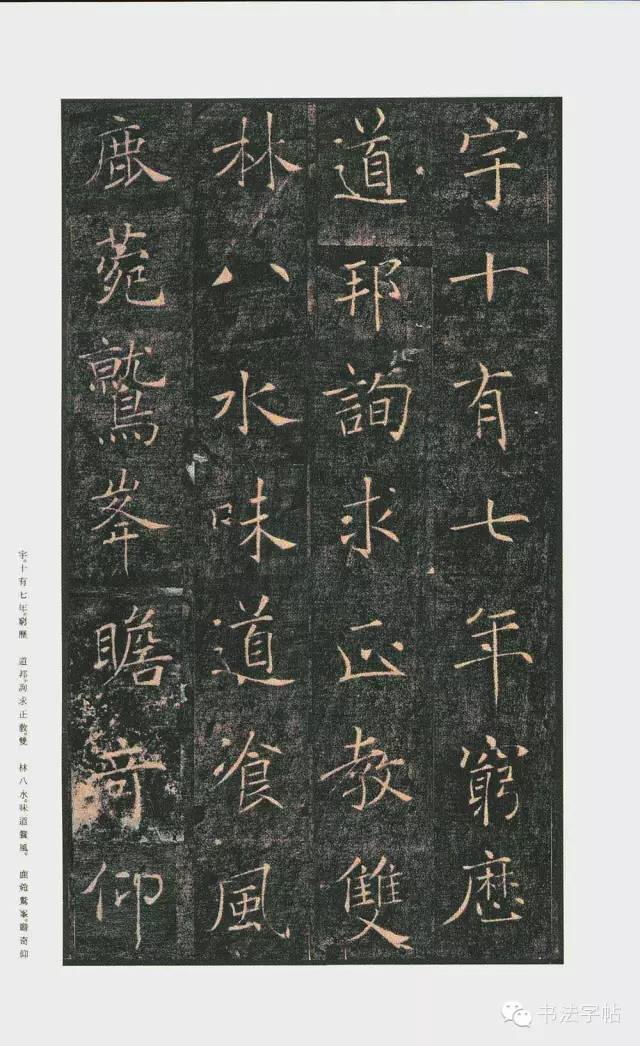 宇十有七年窮歷
道邦詢求正教雙
林八水味道飡風
鹿菀鷲峯瞻奇仰
宇。十有七年。窮歷 道邦。詢求正教。雙 林八水。味道餐風。 鹿菀鷲峯。瞻奇仰
书法字帖